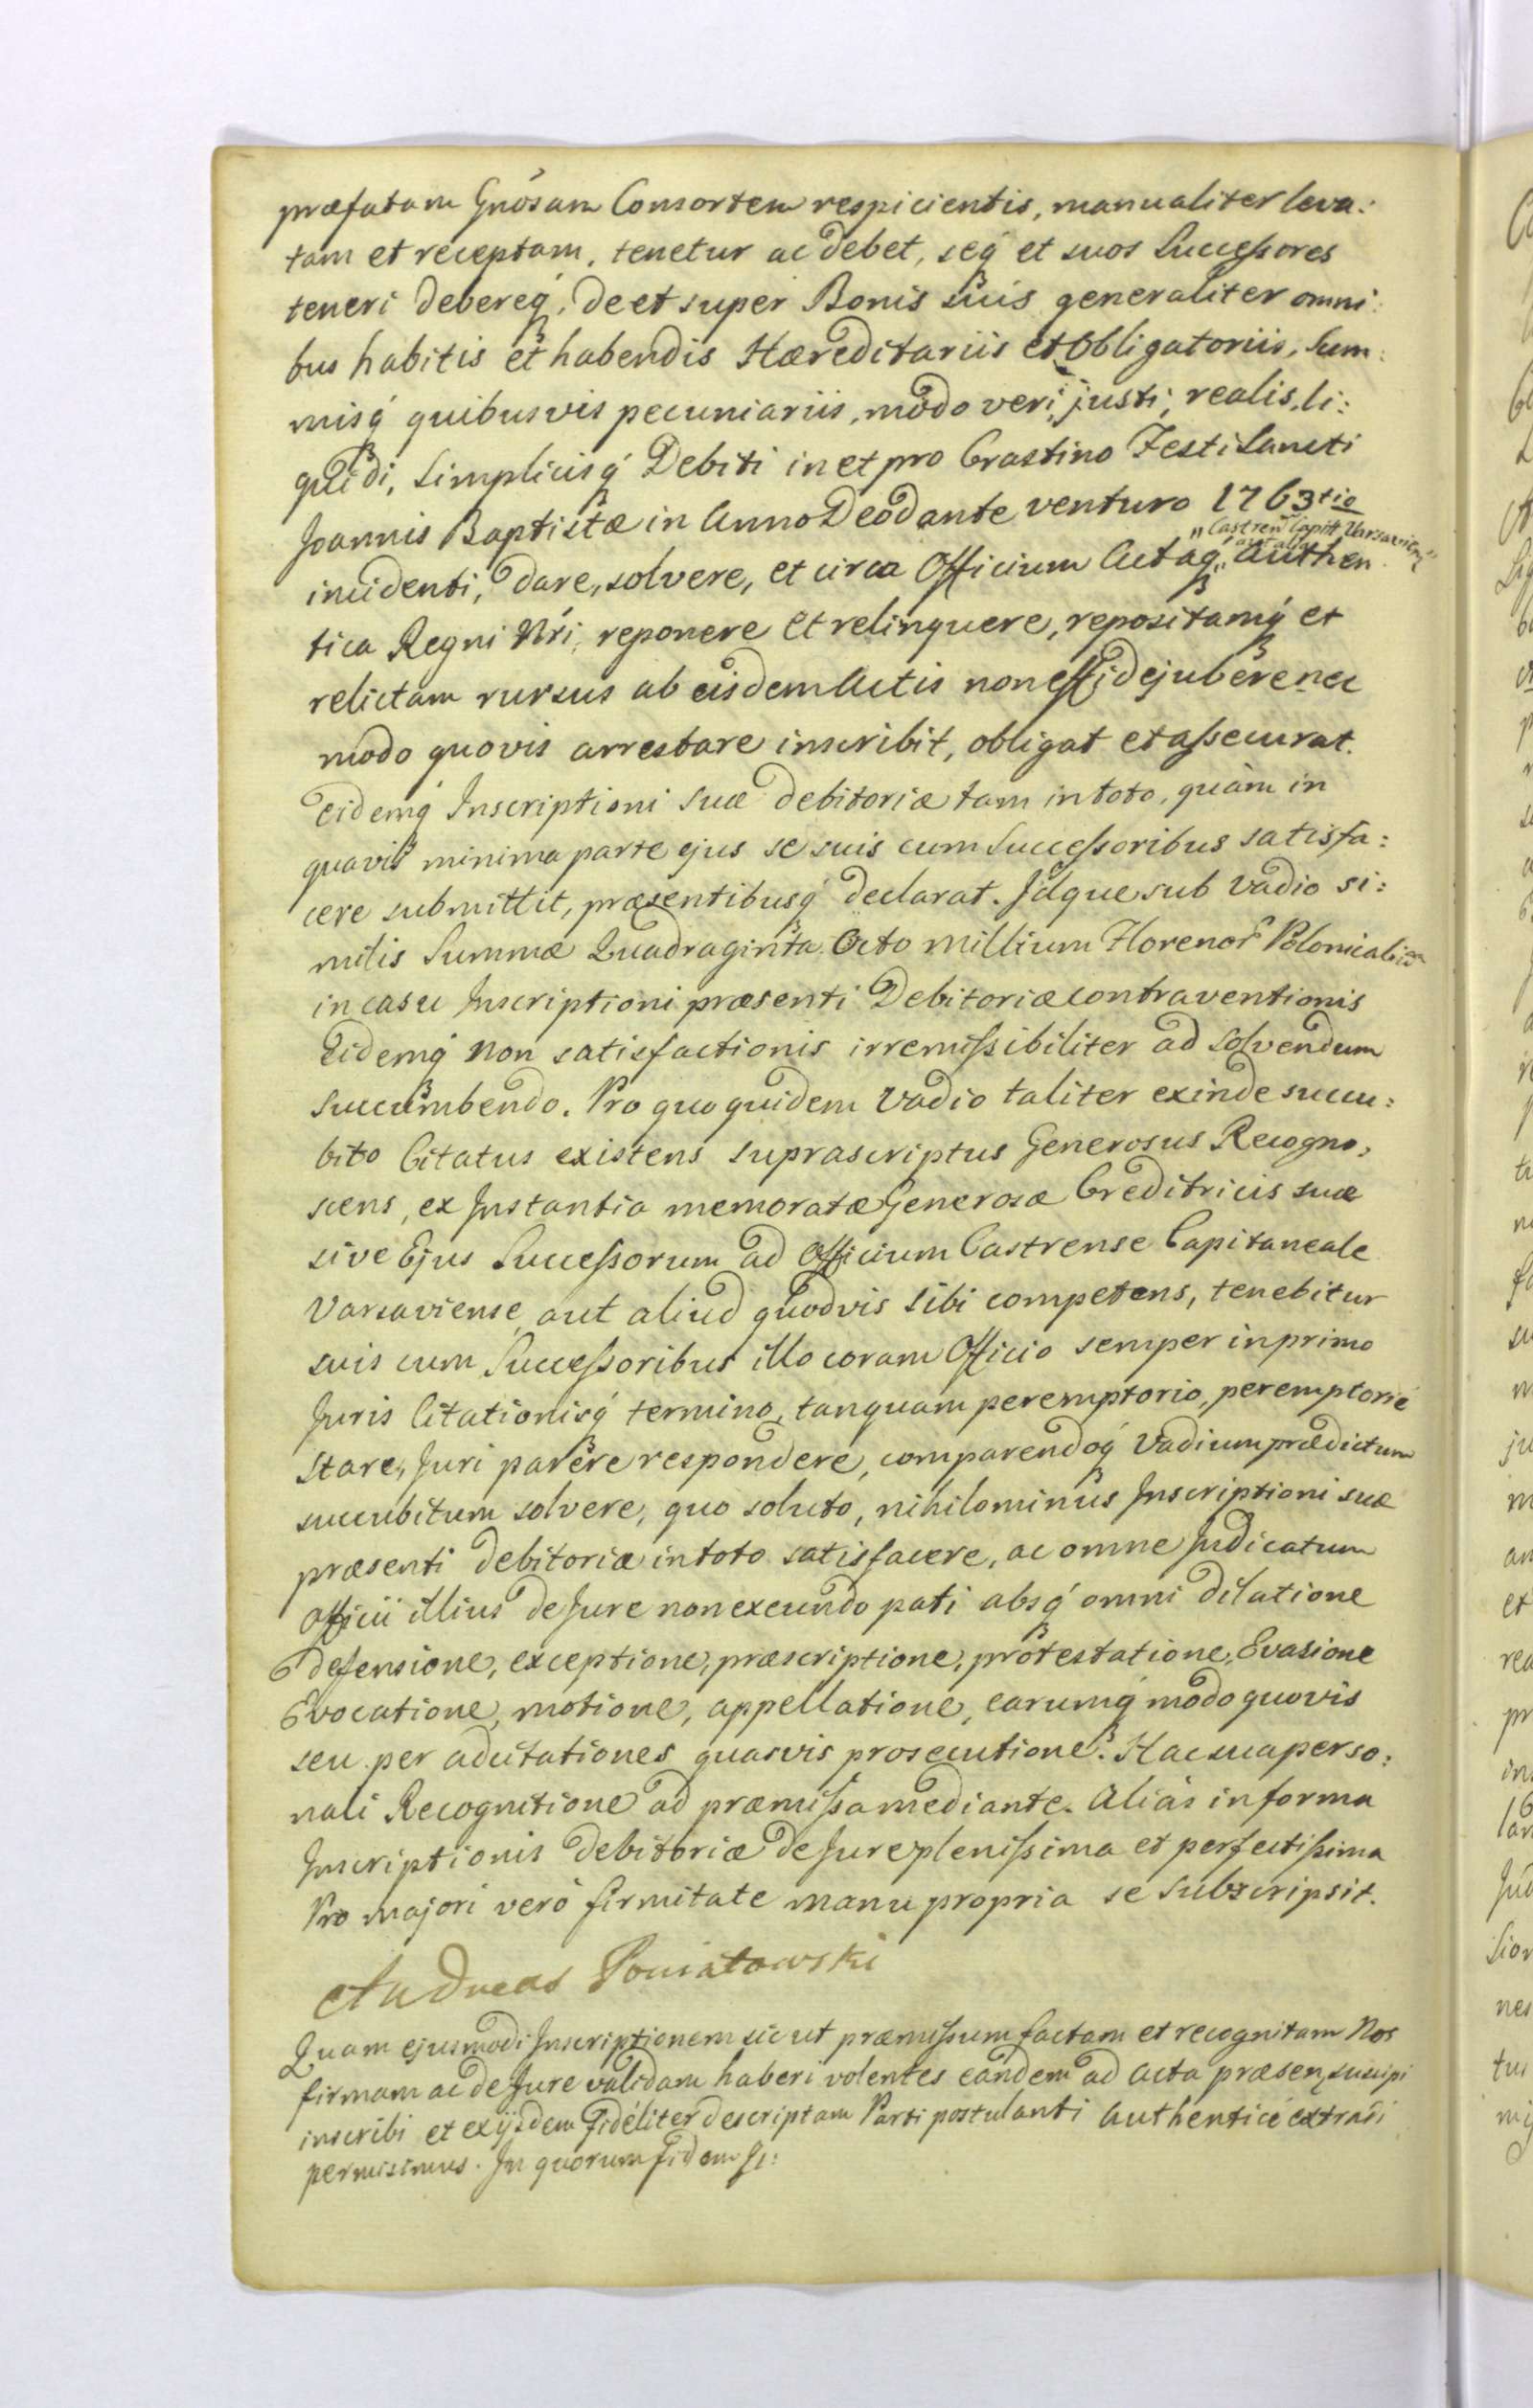 præfatam Gnosam Consortem respicientis, manualiter leva:
tam et receptam, tenetur ac debet, seq́ et suos Successores
teneri debereq́, de et super Bonis suis generaliter omni:
bus habitis et habendis Hæreditariis et Obligatoriis, Sum:
misq́ quibusvis pecuniariis, modo veri, justi, realis, li:
quidi, Simplicisq́ Debiti in et pro Crastino Festi Sancti
Joannis Baptistæ in Anno Deo dante venturo 1763tio
"Castren Capitt Varsavien"
aut alia
incidenti, dare, solvere, et circa Officium Actaq́ " Authen
tica Regni Nri, reponere et relinquere, repositamq́ et
relictam rursus ab eisdem Actis non effidejubere nec
modo quovis arrestare inscribit, obligat et assecurat.
Eidemq́ Inscriptioni suæ debitoriæ tam in toto, quàm in
quavis minima parte ejus se suis cum Successoribus satisfa:
cere submittit, præsentibusq́ declarat. Idque sub vadio si:
milis Summæ Quadraginta Octo millium Florenor Polonicaliu
in casu Inscriptioni præsenti Debitoriæ contraventionis
Eidemq́ non satisfactionis irremissibiliter ad solvendum
succumbendo. Pro quo quidem Vadio taliter exinde succu:
bito Citatus existens suprascriptus Generosus Recogno:
scens, ex Instantia memoratæ Generosæ Creditricis suæ
sive Ejus Successorum ad Officium Castrense Capitaneale
Varsaviense aut aliud quodvis sibi competens, tenebitur
suis cum Successoribus illo coram Officio semper in primo
Juris Citationisq́ termino, tanquam peremptorio, peremptorie
stare, Juri parère respondere, comparendoq́ Vadium prædictum
succubitum solvere, quo soluto, nihilominus Inscriptioni suæ
præsenti debitoriæ in toto satisfacere, ac omne Judicatum
Officii illius de Jure non exeundo pati absq́ omni dilatione
defensione, exceptione, præscriptione, protestatione, Evasione
Evocatione, motione, appellatione, earumq́ modo quovis
seu per adcitationes quasvis prosecutione. Hac sua perso:
nali Recognitione ad præmissa mediante. Aliàs in forma
Inscriptionis debitoriæ de Jure plenissima et perfectissima
Pro majori verò firmitate manu propria se subscripsit.
Andreas Poniatowski
Quam ejusmodi Inscriptionem sic ut præmissum factam et recognitam Nos
firmam ac de Jure validam haberi volentes eandem ad Acta præsen, suscipi
inscribi et ex ijsdem fidéliter descriptam Parti postulanti authenticè extradi
permisimus. In quorum fidem